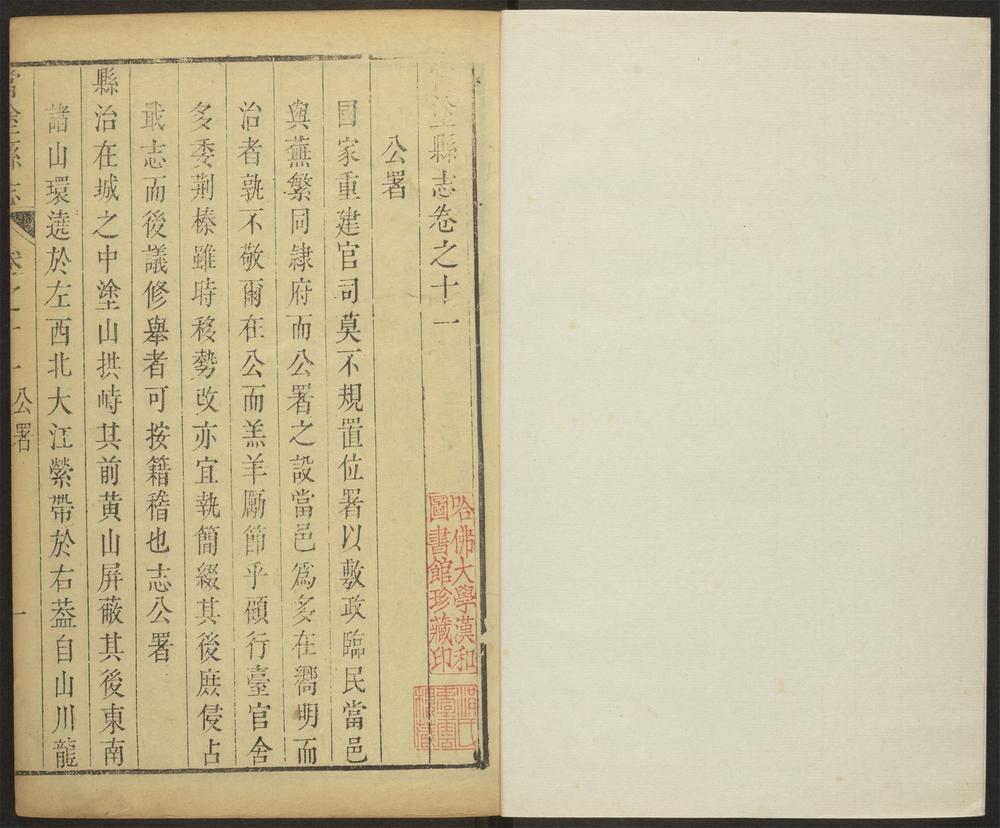 塗縣志卷之十一
公署
國家重建官司莫不規置位署以敷政臨民當邑
與蕪繁同隷府而公署之設當邑爲多在嚮明而
治者孰不敬爾在公而羔羊勵節乎顧行臺官舍
多委荆榛雖時移勢改亦宜執簡綴其後庶侵占
戢志而後議修舉者可按籍稽也志公署
縣治在城之中塗山拱峙其前黄山屏蔽其後東南
諸山環遶於左西北大江縈帶於右葢自山川龍
當塗縣志
卷之十一
公署
一
哈佛大學漢和
圖書館珍藏印